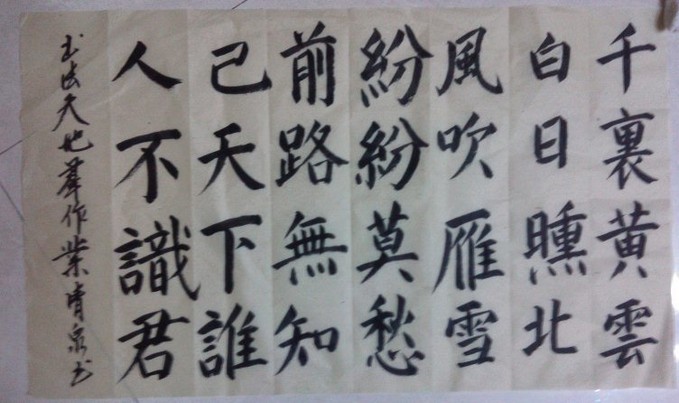 千裏黄雲
白日曛北
風吹雁雪
紛紛莫愁
前路無知
己天下誰
人不識君
书法天地羣作業清泉书